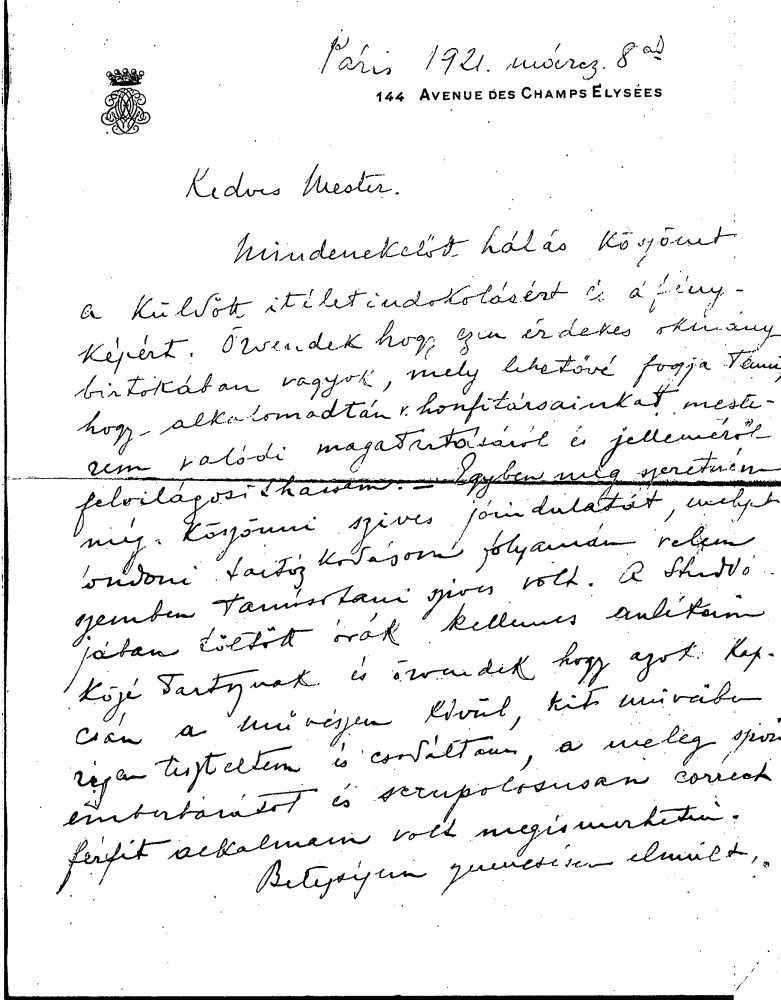 Páris 1921. márcz. 8ád
144 AVENUE DES CHAMPS ELYSÉES
Kedves Mester.
Mindenekelőtt hálás köszönet
a küldött itéletindokolásért és a fény-
képért. Örvendek hogy ezen érdekes okmány
birtokában vagyok, mely lehetővé fogja tenni
hogy alkalomadtán v. honfitársainkat meste-
rem valódi magatartásáról és jelleméről
felvilágosithassam. – Egyben még szeretném
még köszönni szives jóindulatát, melyet
londoni tartózkodásom folyamán velem
szemben tanusitani szives volt. A Studió-
jában töltött órák kellemes emlékeim
közé tartoznak és örvendek hogy azok kap-
csán a művészen kívül, kit műveiben
régen tiszteltem és csodáltam, a meleg szivü
emberbarátot és scrupolosusan correct
férfit alkalmam volt megismerhetni.
Betegségem szerencsésen elmúlt,